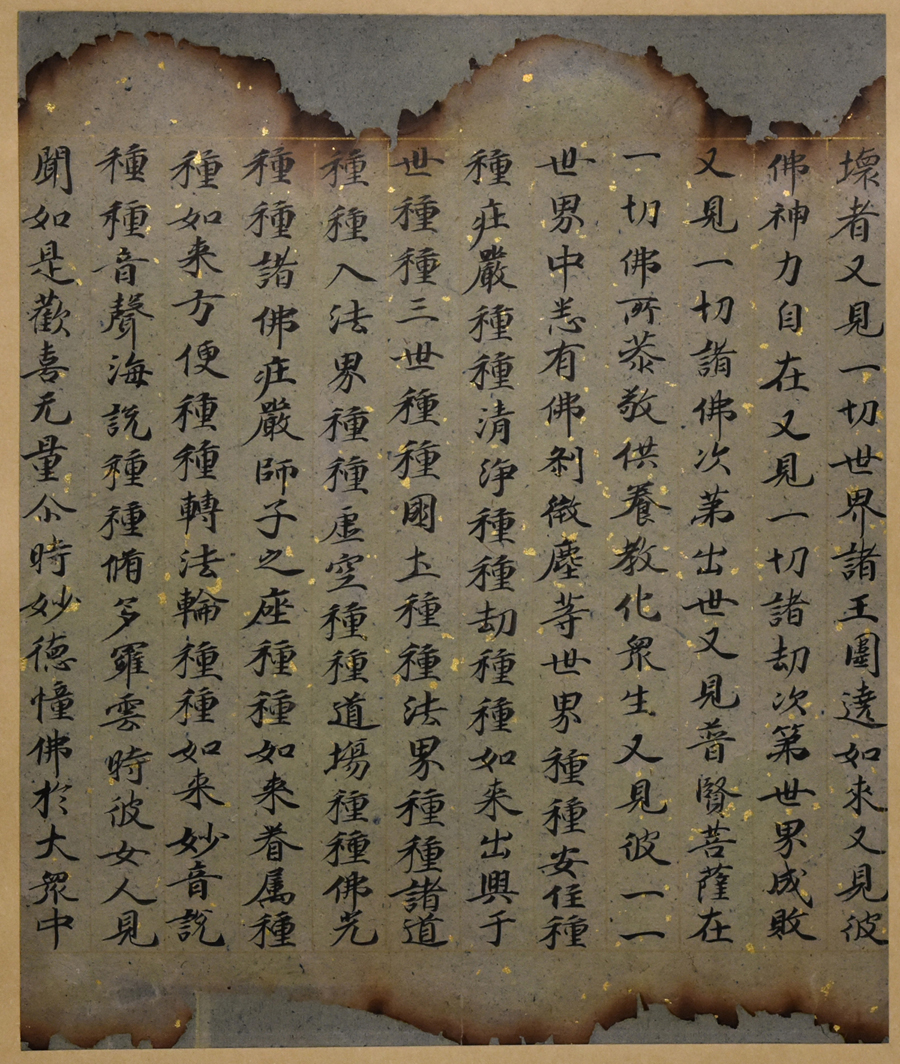 壞者又見一切世界諸王圍遶如来又見彼
佛神力自在又見一切諸劫次第世界成敗
又見一切諸佛次苐出世又見普賢菩薩在
一切佛所恭敬供養教化衆生又見彼一一
世界中悉有佛剎微塵等世界種種安住種
種庄嚴種種清淨種種劫種種如来出興于
世種種三世種種國土種種法界種種諸道
種種入法界種種虚空種種道場種種佛光
種種諸佛庄嚴師子之座種種如来眷属種
種如来方便種種轉法輪種種如来妙音說
種種音聲海說種種脩多羅雲時彼女人見
聞如是歡喜无量尒時妙德憧佛於大衆中